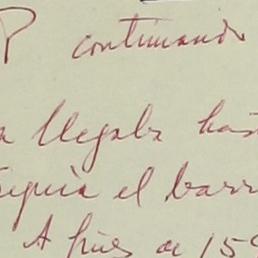 P continuando
a llegaba has
seguía el barr
A fines de 159